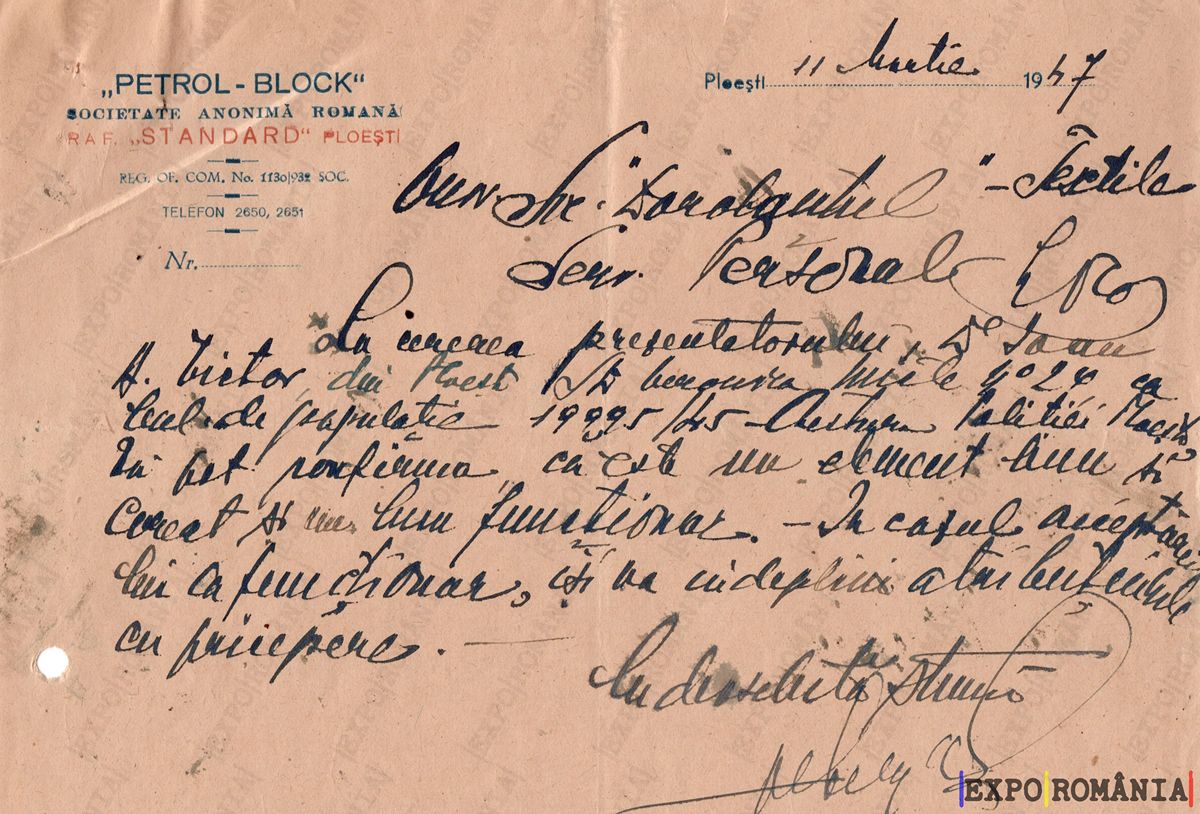 „PETROL - BLOCK"
SOCIETATE ANONIMĂ ROMANĂ
RAF. „STANDARD" PLOEȘTI
REG. OF. COM. No. 1130/932 SOC.
TELEFON 2650, 2651
Nr.
Ploești 11 Martie 1947
Onor. Soc. "Dorobanțul" - Textila
Serv. Personal
La cererea presentatorului, Dl Ioan
A. Victor, din Ploești No 24 cu
bul. de populație 19995/45 Poliției Ploești
Vă pot confirma, că este un element bun și
corect și un bun funcționar. - In casul acceptării
lui ca funcționar, își va indeplini atribuțiunile
cu pricepere. -
Cu deosebită stimă
EXPOROMÂNIA